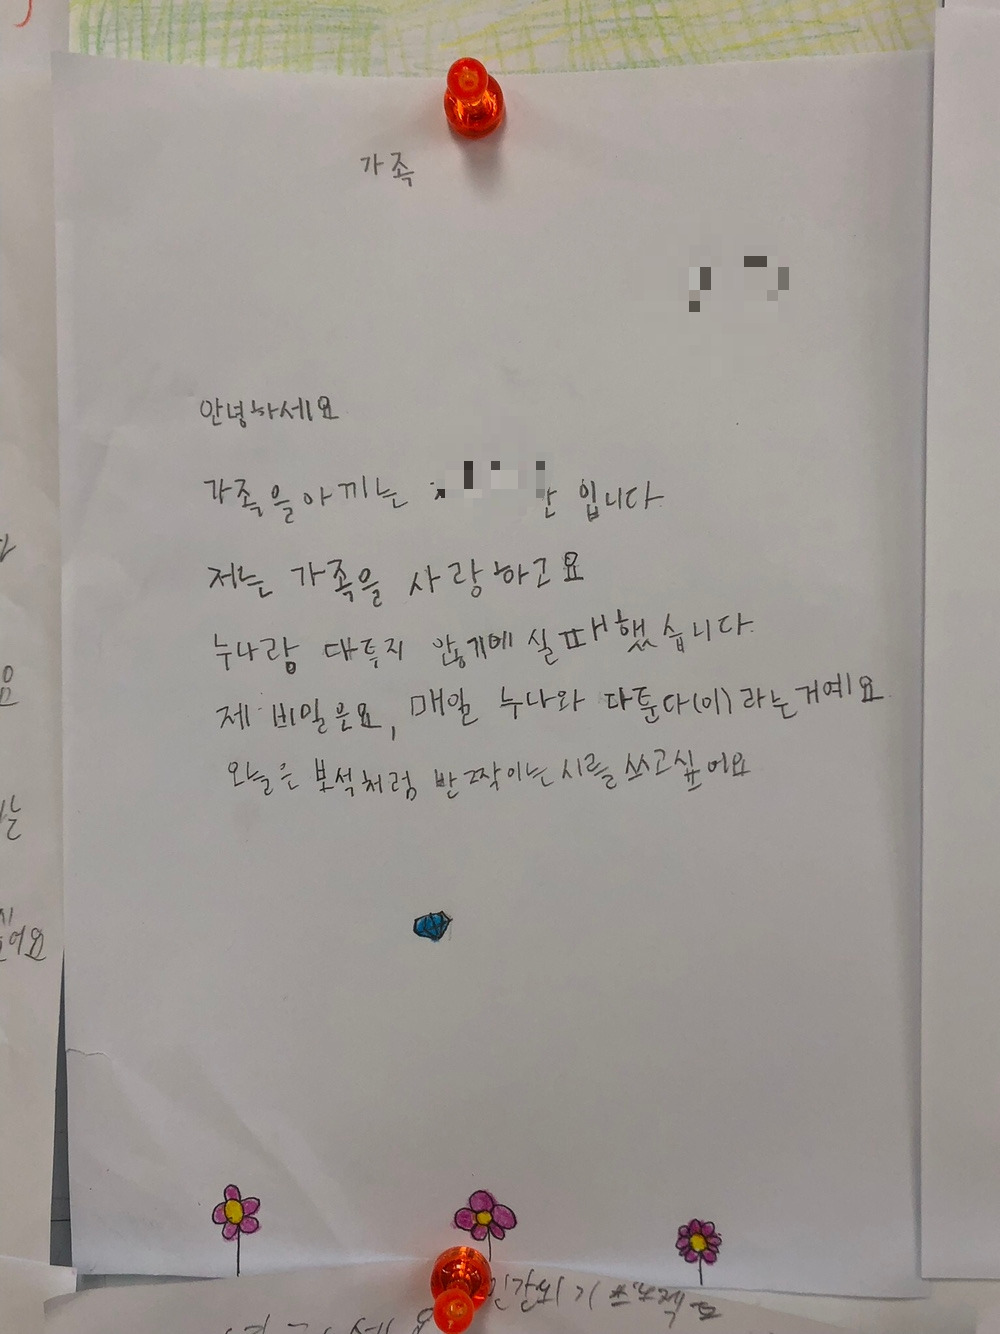 가족
안녕하세요
가족을아끼는 입니다.
저는 가족을 사랑하고요
누나랑 다투지 않기에 실패했습니다.
제 비밀은요, 매일 누나와 다툰다(이)라는거예요.
오늘은 보석처럼 반짝이는 시를 쓰고싶어요
어요